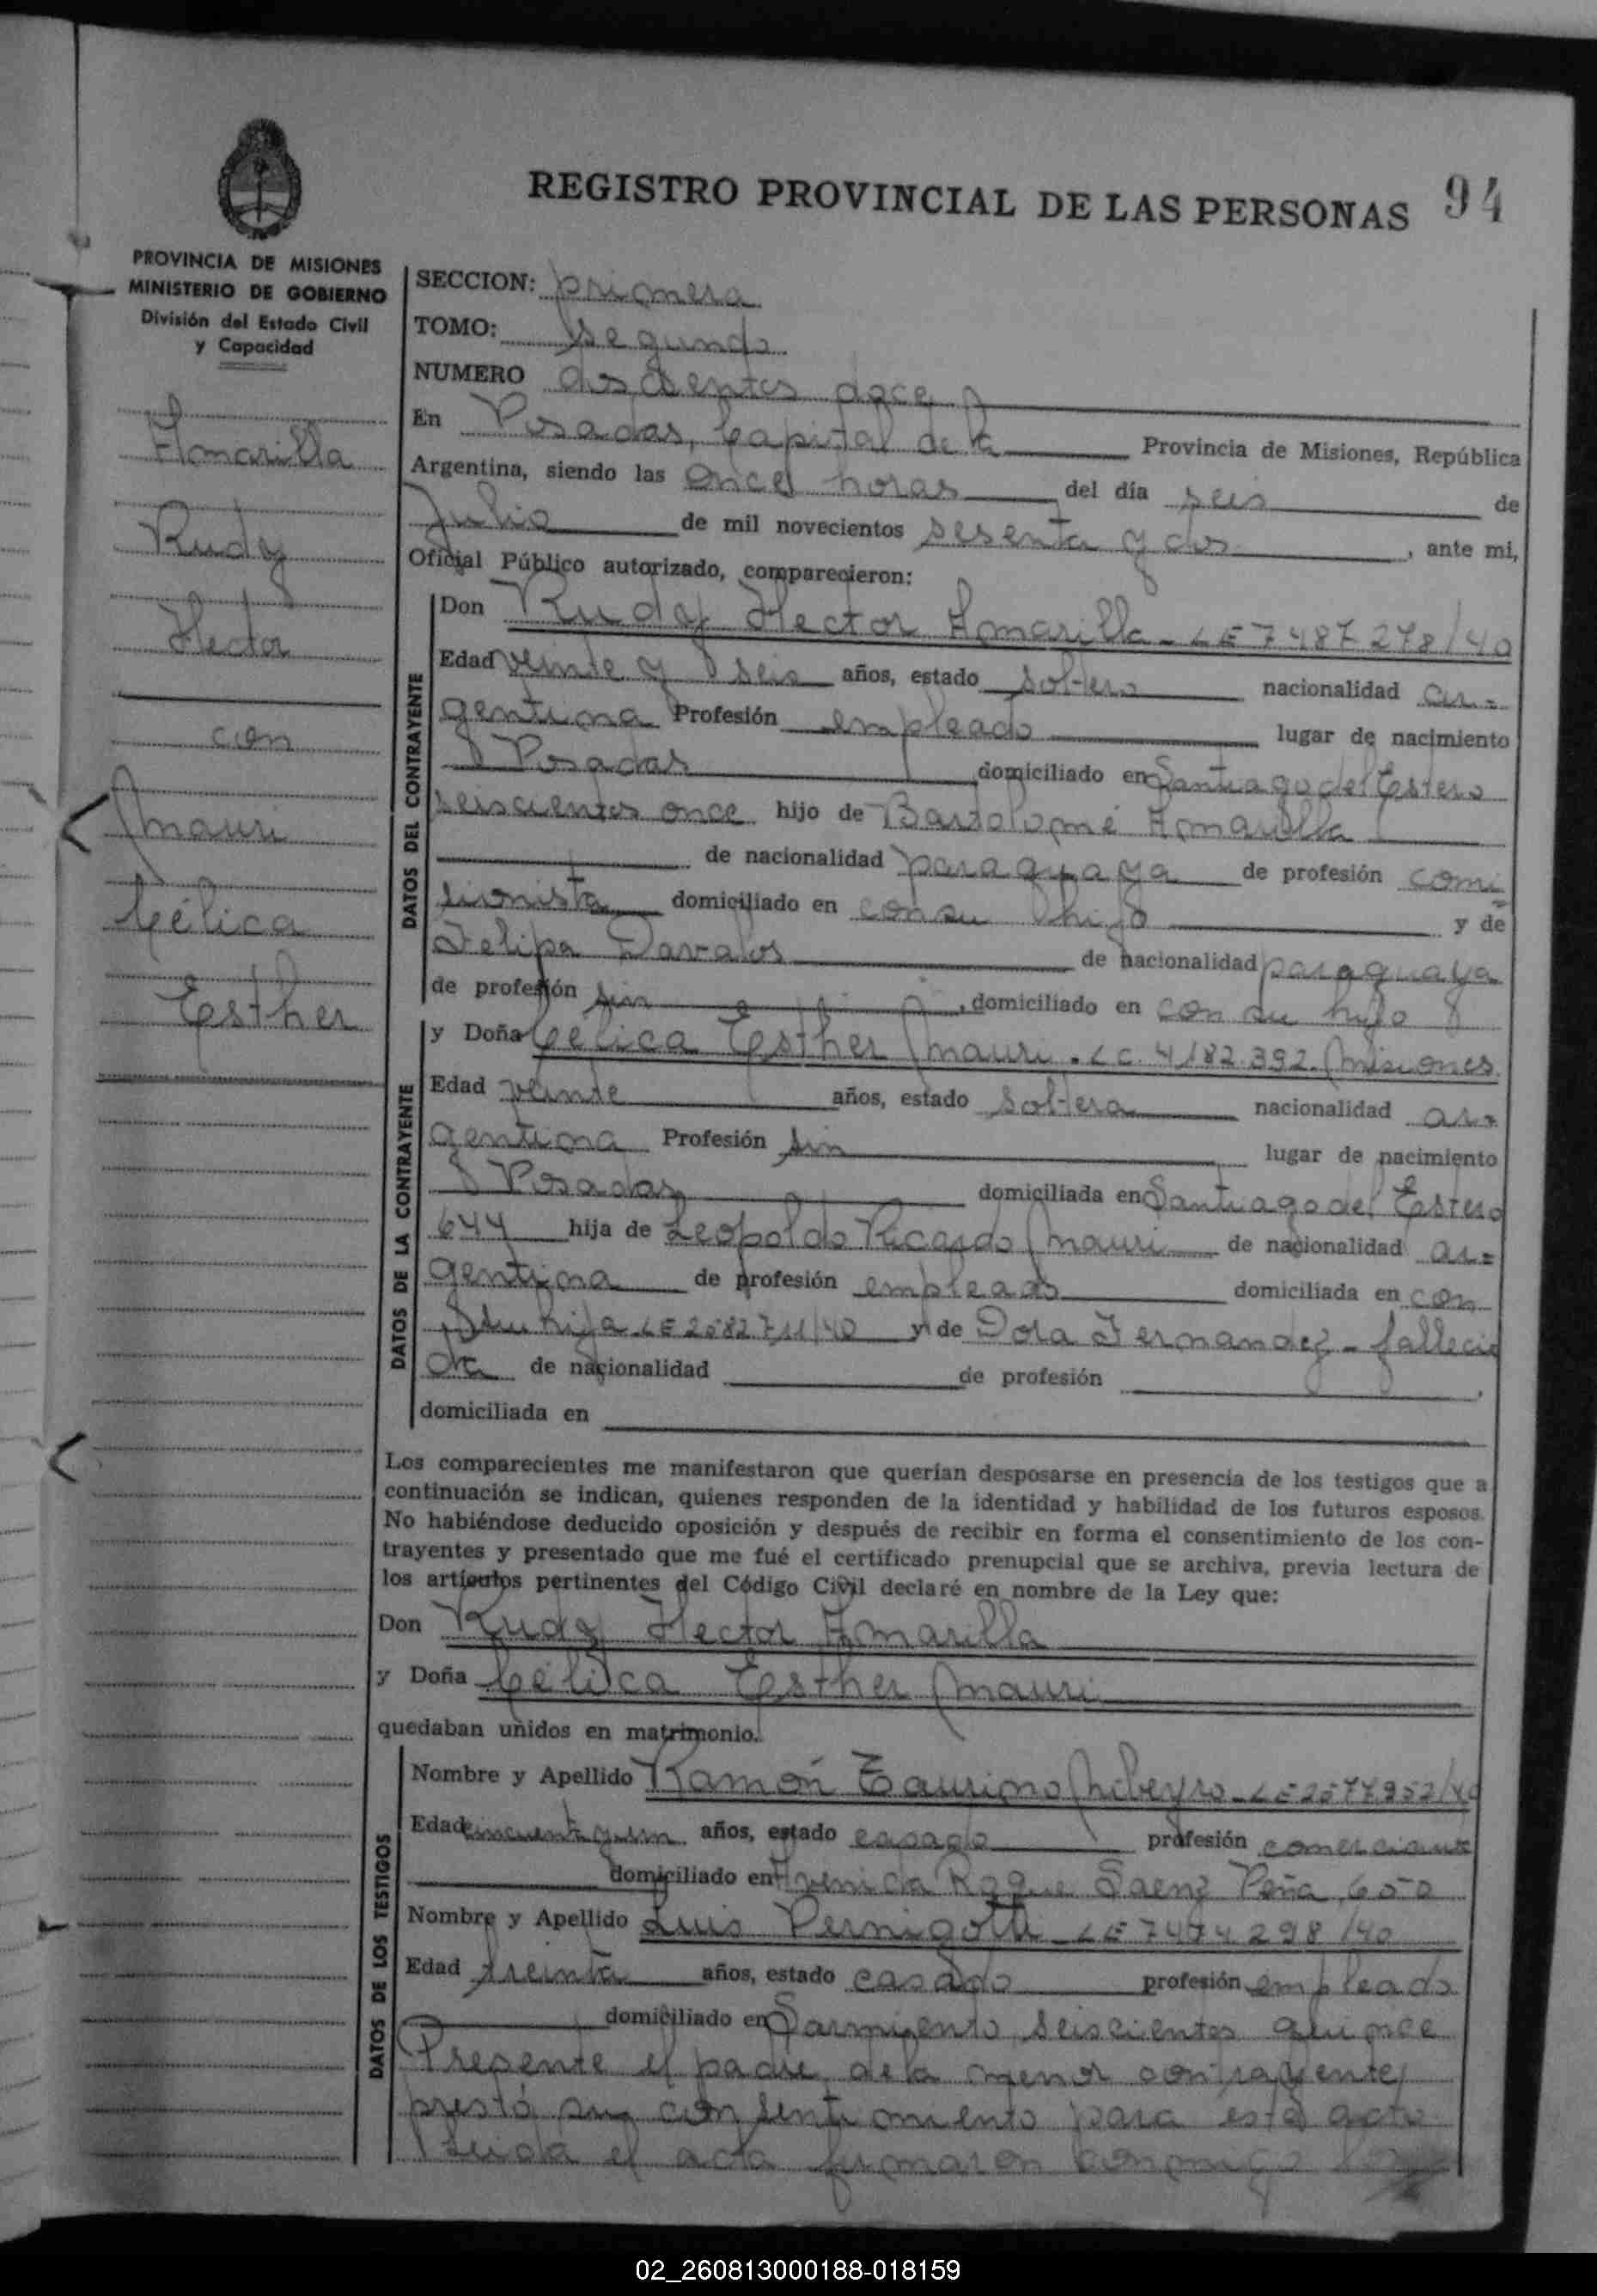 REGISTRO PROVINCIAL DE LAS PERSONAS 94
PROVINCIA DE MISIONES
MINISTERIO DE GOBIERNO
División del Estado Civil
y Capacidad
Amarilla
Rudy
Hector
con
Mauri
Célica
Esther
SECCION: primera
TOMO: segundo
NUMERO doscientos doce
En Posadas, Capital de la Provincia de Misiones, República
Argentina, siendo las once horas del día seis de
Julio de mil novecientos sesenta y dos, ante mi,
Oficial Público autorizado, comparecieron:
DATOS DEL CONTRAYENTE
Don Rudy Hector Amarilla - LE 7487278/40
Edad veinte y seis años, estado soltero nacionalidad ar=
gentina Profesión empleado lugar de nacimiento
Posadas domiciliado en Santiago del Estero
seiscientos once hijo de Bartolomé Amarilla
de nacionalidad paraguaya de profesión comi=
sionista domiciliado en con su hijo y de
Felipa Davalos de nacionalidad paraguaya
de profesión sin, domiciliado en con su hijo
DATOS DE LA CONTRAYENTE
y Doña Célica Esther Mauri. LC. 4182.392. Misiones.
Edad veinte años, estado soltera nacionalidad ar=
gentina Profesión sin lugar de nacimiento
Posadas domiciliada en Santiago del Estero
644 hija de Leopoldo Ricardo Mauri de nacionalidad ar=
gentina de profesión empleado domiciliada en con
su hija LE 2582711/40 y de Dora Fernandez - falleci
da de nacionalidad de profesión ,
domiciliada en
Los comparecientes me manifestaron que querían desposarse en presencia de los testigos que a
continuación se indican, quienes responden de la identidad y habilidad de los futuros esposos.
No habiéndose deducido oposición y después de recibir en forma el consentimiento de los con-
trayentes y presentado que me fué el certificado prenupcial que se archiva, previa lectura de
los artículos pertinentes del Código Civil declaré en nombre de la Ley que:
Don Rudy Hector Amarilla
y Doña Célica Esther Mauri
quedaban unidos en matrimonio.
DATOS DE LOS TESTIGOS
Nombre y Apellido Ramón Taurino Ribeyro - LE 2577952/40
Edad cincuenta y un años, estado casado profesión comerciante
domiciliado en Avenida Roque Saenz Peña 650
Nombre y Apellido Luis Pernigotti - LE 7474298/40
Edad treinta años, estado casado profesión empleado
domiciliado en Sarmiento seiscientos quince
Presente el padre de la menor contrayente
prestó su consentimiento para este acto
Leida el acta firmaron conmigo los
02_260813000188-018159